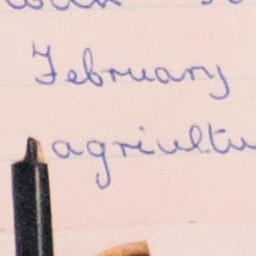 February
agricultu